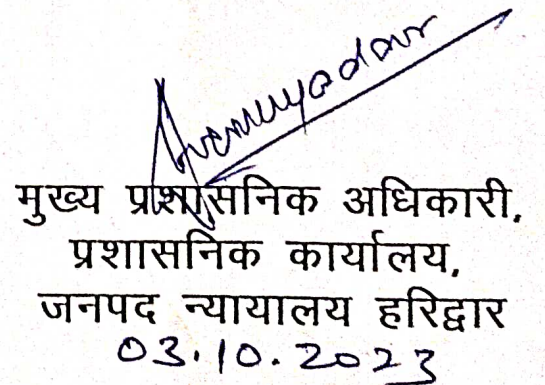 मुख्य प्रशासनिक अधिकारी,
प्रशासनिक कार्यालय,
जनपद न्यायालय हरिद्वार
03.10.2023